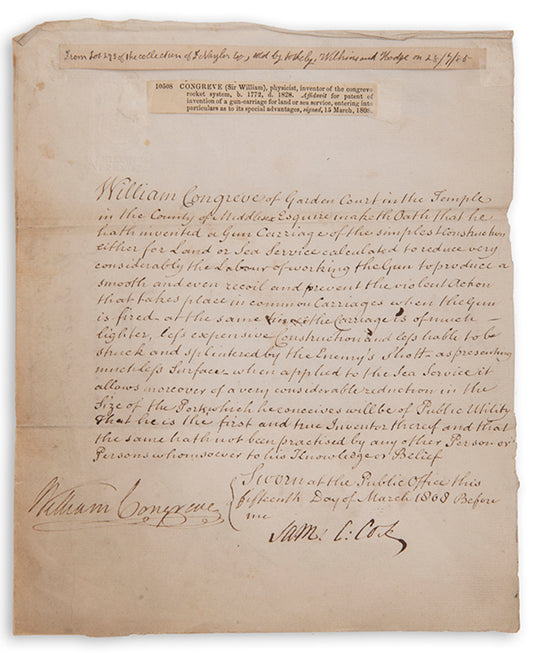 From Lot 273 of the collection of J. Naylor Esq, sold by Sotheby, Wilkins and Hodge on 28/7/85
10508 CONGREVE (Sir William), physicist, inventor of the congreve
rocket system, b. 1772, d. 1828. Affidavit for patent of
invention of a gun-carriage for land or sea service, entering into
particulars as to its special advantages, signed, 15 March, 1808
William Congreve of Garden Court in the Temple
in the County of Middlesex Esquire maketh Oath that he
hath invented a Gun Carriage of the simplest Construction
either for Land or Sea Service calculated to reduce very
considerably the Labour of working the Gun to produce a
smooth and even recoil and prevent the violent Action
that takes place in common Carriages when the Gun
is fired at the same time the Carriage is of much
lighter, less expensive Construction and less liable to be
struck and splintered by the Enemy's Shott as presenting
much less Surface when applied to the Sea Service it
allows moreover of a very considerable reduction in the
Size of the Port which he conceives will be of Public Utility
that he is the first and true Inventor thereof and that
the same hath not been practised by any other Person or
Persons whomsoever to his Knowledge or Belief
William Congreve
Sworn at the Public Office this
fifteenth Day of March 1808 Before
me
Saml. C: Cox